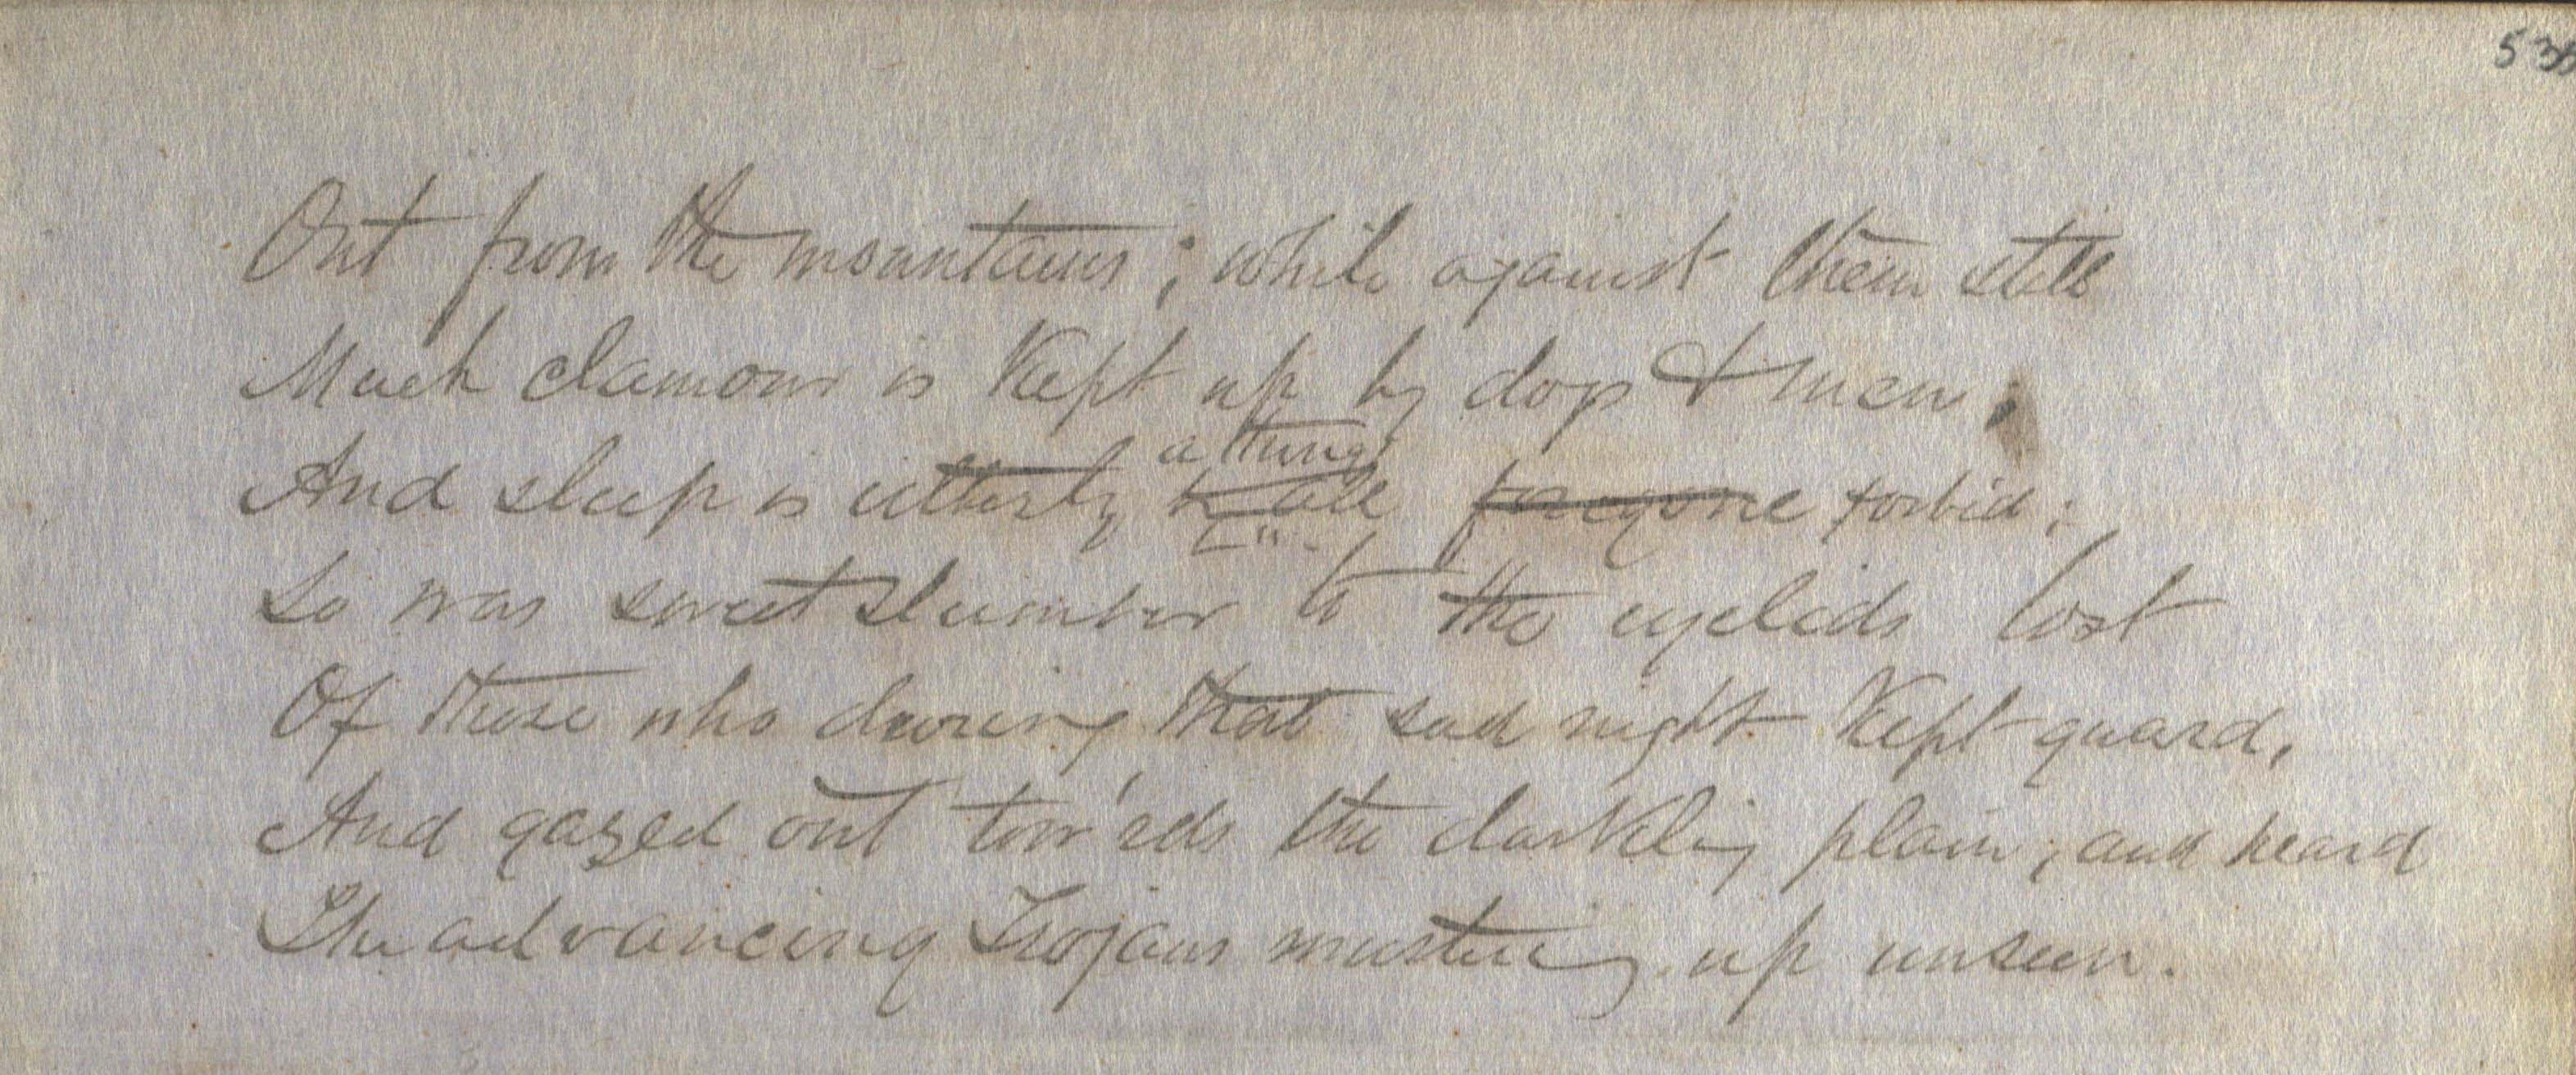 53
Out from the mountains; while against them still
Much clamour is kept up by dogs & men;
a thing
And sleep is utterly to all foregone forbid;
So was sweet slumber to the eyelids lost
Of those who during that sad night kept guard,
And gazed out tow'rds the darkling plain, and heard
The advancing Trojans mustering up unseen.